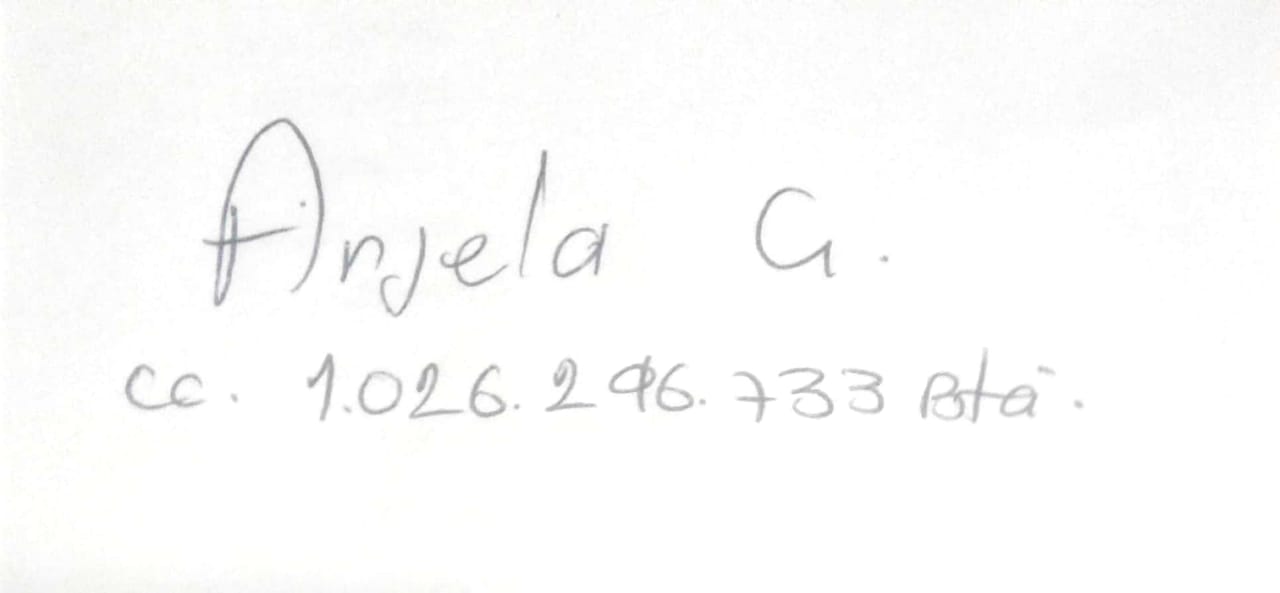 Anjela G.
cc. 1.026.296.733 Btá.